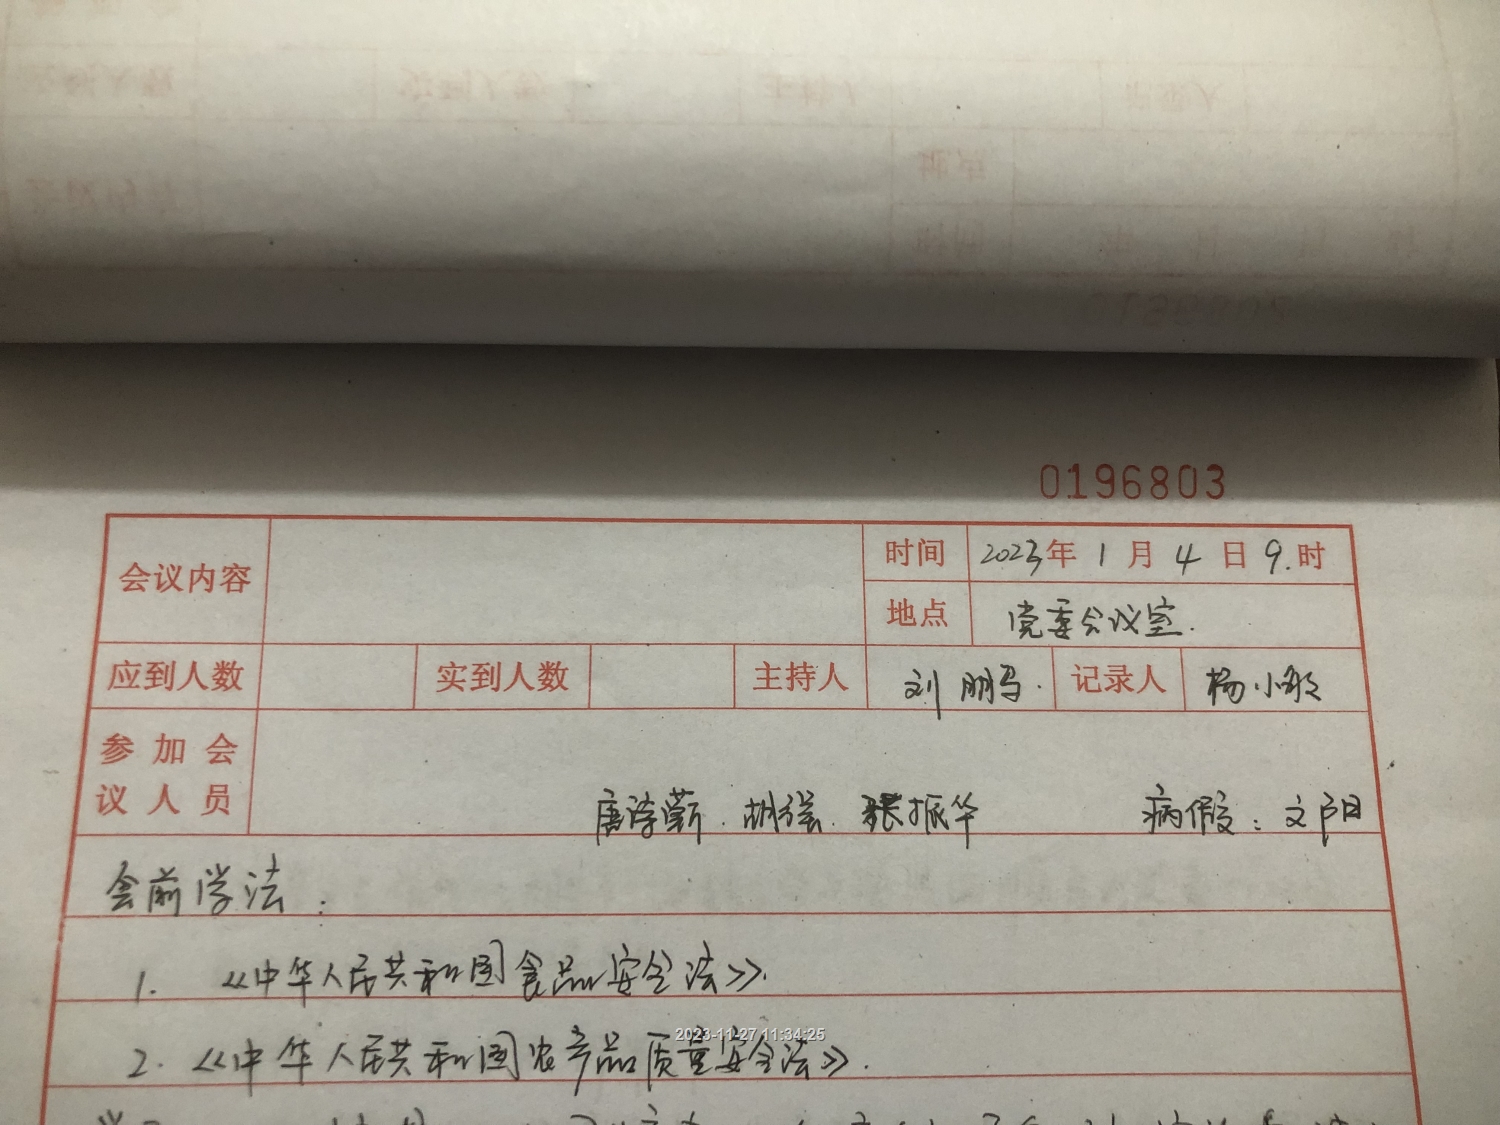 0196803
会议内容 时间 2023年1月4日9.时
地点 党委会议室.
应到人数 实到人数 主持人 刘鹏马. 记录人 杨小
参加会
议人员 唐诗 . 胡强. 张振华 病假：文阳
会前学法：
1. 《中华人民共和国食品安全法》.
2023-11-27 11:34:25
2. 《中华人民共和国农产品质量安全法》.